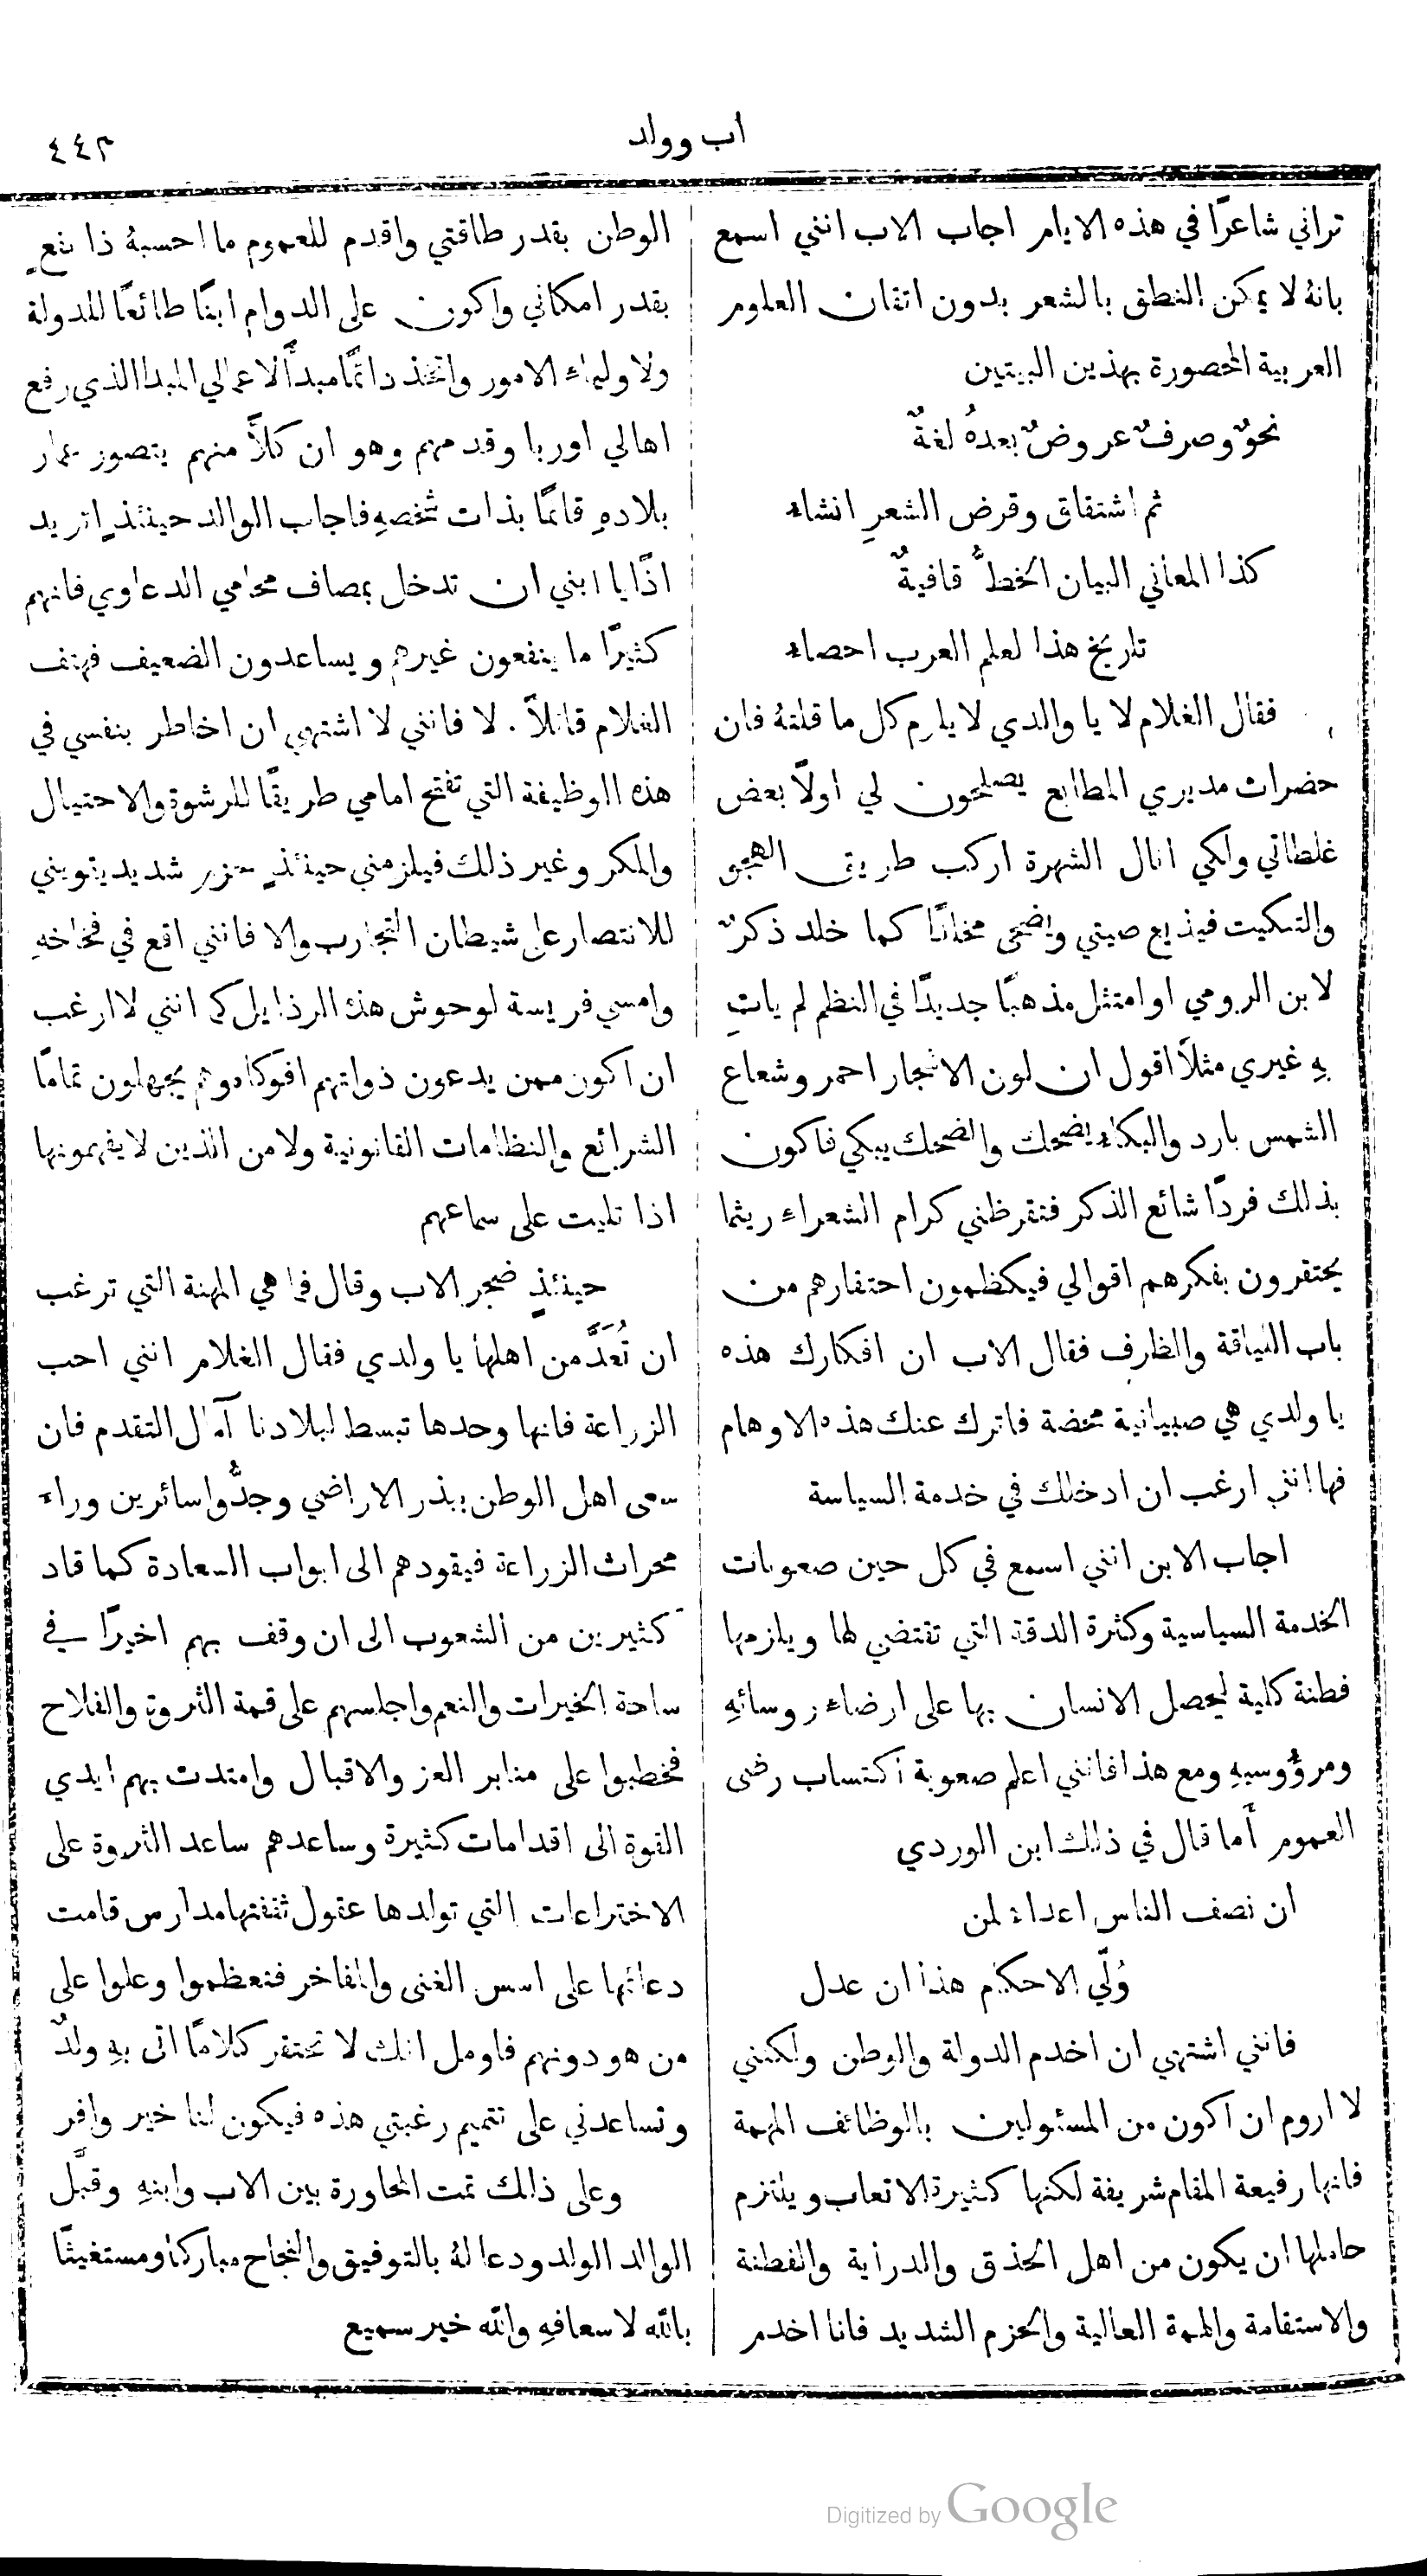 اب وولد
٤٤٣
تراني شاعرًا في هذه الايام اجاب الاب انني اسمع
بانهُ لا يمكن النطق بالشعر بدون اتقان العلوم
العربية المحصورة بهذين البيتين
نحوٌ وصرفٌ عروضٌ بعدهُ لغةٌ
ثم اشتقاق وقرض الشعرِ انشاء
كذا المعاني البيان الخطُّ قافيةٌ
تاريخ هذا لعلم العرب احصاء
فقال الغلام لا يا والدي لا يلزم كل ما قلتهُ فان
حضرات مديري المطابع يصلحون لي اولًا بعض
غلطاتي ولكي انال الشهرة اركب طريق الهجو
والتنكيت فيذيع صيتي ويضحى مخلدًا كما خلد ذكرٌ
لابن الرومي او امتثل مذهبًا جديدًا في النظم لم ياتِ
بهِ غيري مثلًا اقول ان لون الاشجار احمر وشعاع
الشمس بارد والبكاء يضحك والضحك يبكي فاكون
بذلك فردًا شائع الذكر فتقرظني كرام الشعراء ريثما
يحتقرون بفكرهم اقوالي فيكظمون احتقارهم من
باب اللياقة والظرف فقال الاب ان افكارك هذه
يا ولدي هي صبيانية محضة فاترك عنك هذه الاوهام
فها انني ارغب ان ادخلك في خدمة السياسة
اجاب الابن انني اسمع في كل حين صعوبات
الخدمة السياسية وكثرة الدقة التي تقتضي لها ويلزمها
فطنة كلية ليحصل الانسان بها على ارضاء روسائهِ
ومرؤُوسيهِ ومع هذا فانني اعلم صعوبة اكتساب رضى
العموم أما قال في ذلك ابن الوردي
ان نصف الناس اعداء لمن
وُلّي الاحكام هذا ان عدل
فانني اشتهي ان اخدم الدولة والوطن ولكنني
لا اروم ان اكون من المسئولين بالوظائف المهمة
فانها رفيعة المقام شريفة لكنها كثيرة الاتعاب ويلتزم
حاملها ان يكون من اهل الحذق والدراية والفطنة
والاستقامة والهمة العالية والحزم الشديد فانا اخدم
الوطن بقدر طاقتي واقدم للعموم ما احسبهُ ذا نفعٍ
بقدر امكاني واكون على الدوام ابنًا طائعًا للدولة
ولاولياء الامور واتخذ دائمًا مبدأً لاعمالي المبدا الذي رفع
اهالي اوربا وقدمهم وهو ان كلًّا منهم يتصور عمار
بلادهِ قائمًا بذات شخصهِ فاجاب الوالد حينئذٍ اتريد
اذًا يا ابني ان تدخل بمصاف محامي الدعاوي فانهم
كثيرًا ما ينفعون غيرهم ويساعدون الضعيف فهتف
الغلام قائلًا . لا فانني لا اشتهي ان اخاطر بنفسي في
هذه الوظيفة التي تفتح امامي طريقًا للرشوة والاحتيال
والمكر وغير ذلك فيلزمني حينئذٍ حزم شديد يقويني
للانتصار على شيطان التجارب والا فانني اقع في فخاخهِ
وامسي فريسة لوحوش هذه الرذايل كما انني لا ارغب
ان اكون ممن يدعون ذواتهم افوكادو وهم يجهلون تمامًا
الشرائع والنظامات القانونية ولا من الذين لا يفهمونها
اذا تليت على سماعهم
حينئذٍ ضجر الاب وقال فما هي المهنة التي ترغب
ان تُعَدَّ من اهلها يا ولدي فقال الغلام انني احب
الزراعة فانها وحدها تبسط لبلادنا آمال التقدم فان
سعى اهل الوطن ببذر الاراضي وجدُّوا سائرين وراء
محراث الزراعة فيقودهم الى ابواب السعادة كما قاد
كثيرين من الشعوب الى ان وقف بهم اخيرًا في
ساحة الخيرات والنعم واجلسهم على قمة الثروة والفلاح
فخطبوا على منابر العز والاقبال وامتدت بهم ايدي
القوة الى اقدامات كثيرة وساعدهم ساعد الثروة على
الاختراعات التي تولدها عقول ثقفتها مدارس قامت
دعائمها على اسس الغنى والمفاخر فتعظموا وعلوا على
من هو دونهم فاومل انك لا تحتقر كلامًا اتى بهِ ولدٌ
وتساعدني على تتميم رغبتي هذه فيكون لنا خير وافر
وعلى ذلك تمت المحاورة بين الاب وابنهِ وقبَّل
الوالد الولد ودعا لهُ بالتوفيق والنجاح مباركًا ومستغيثًا
بالله لاسعافهِ والله خير سميع
Digitized by Google